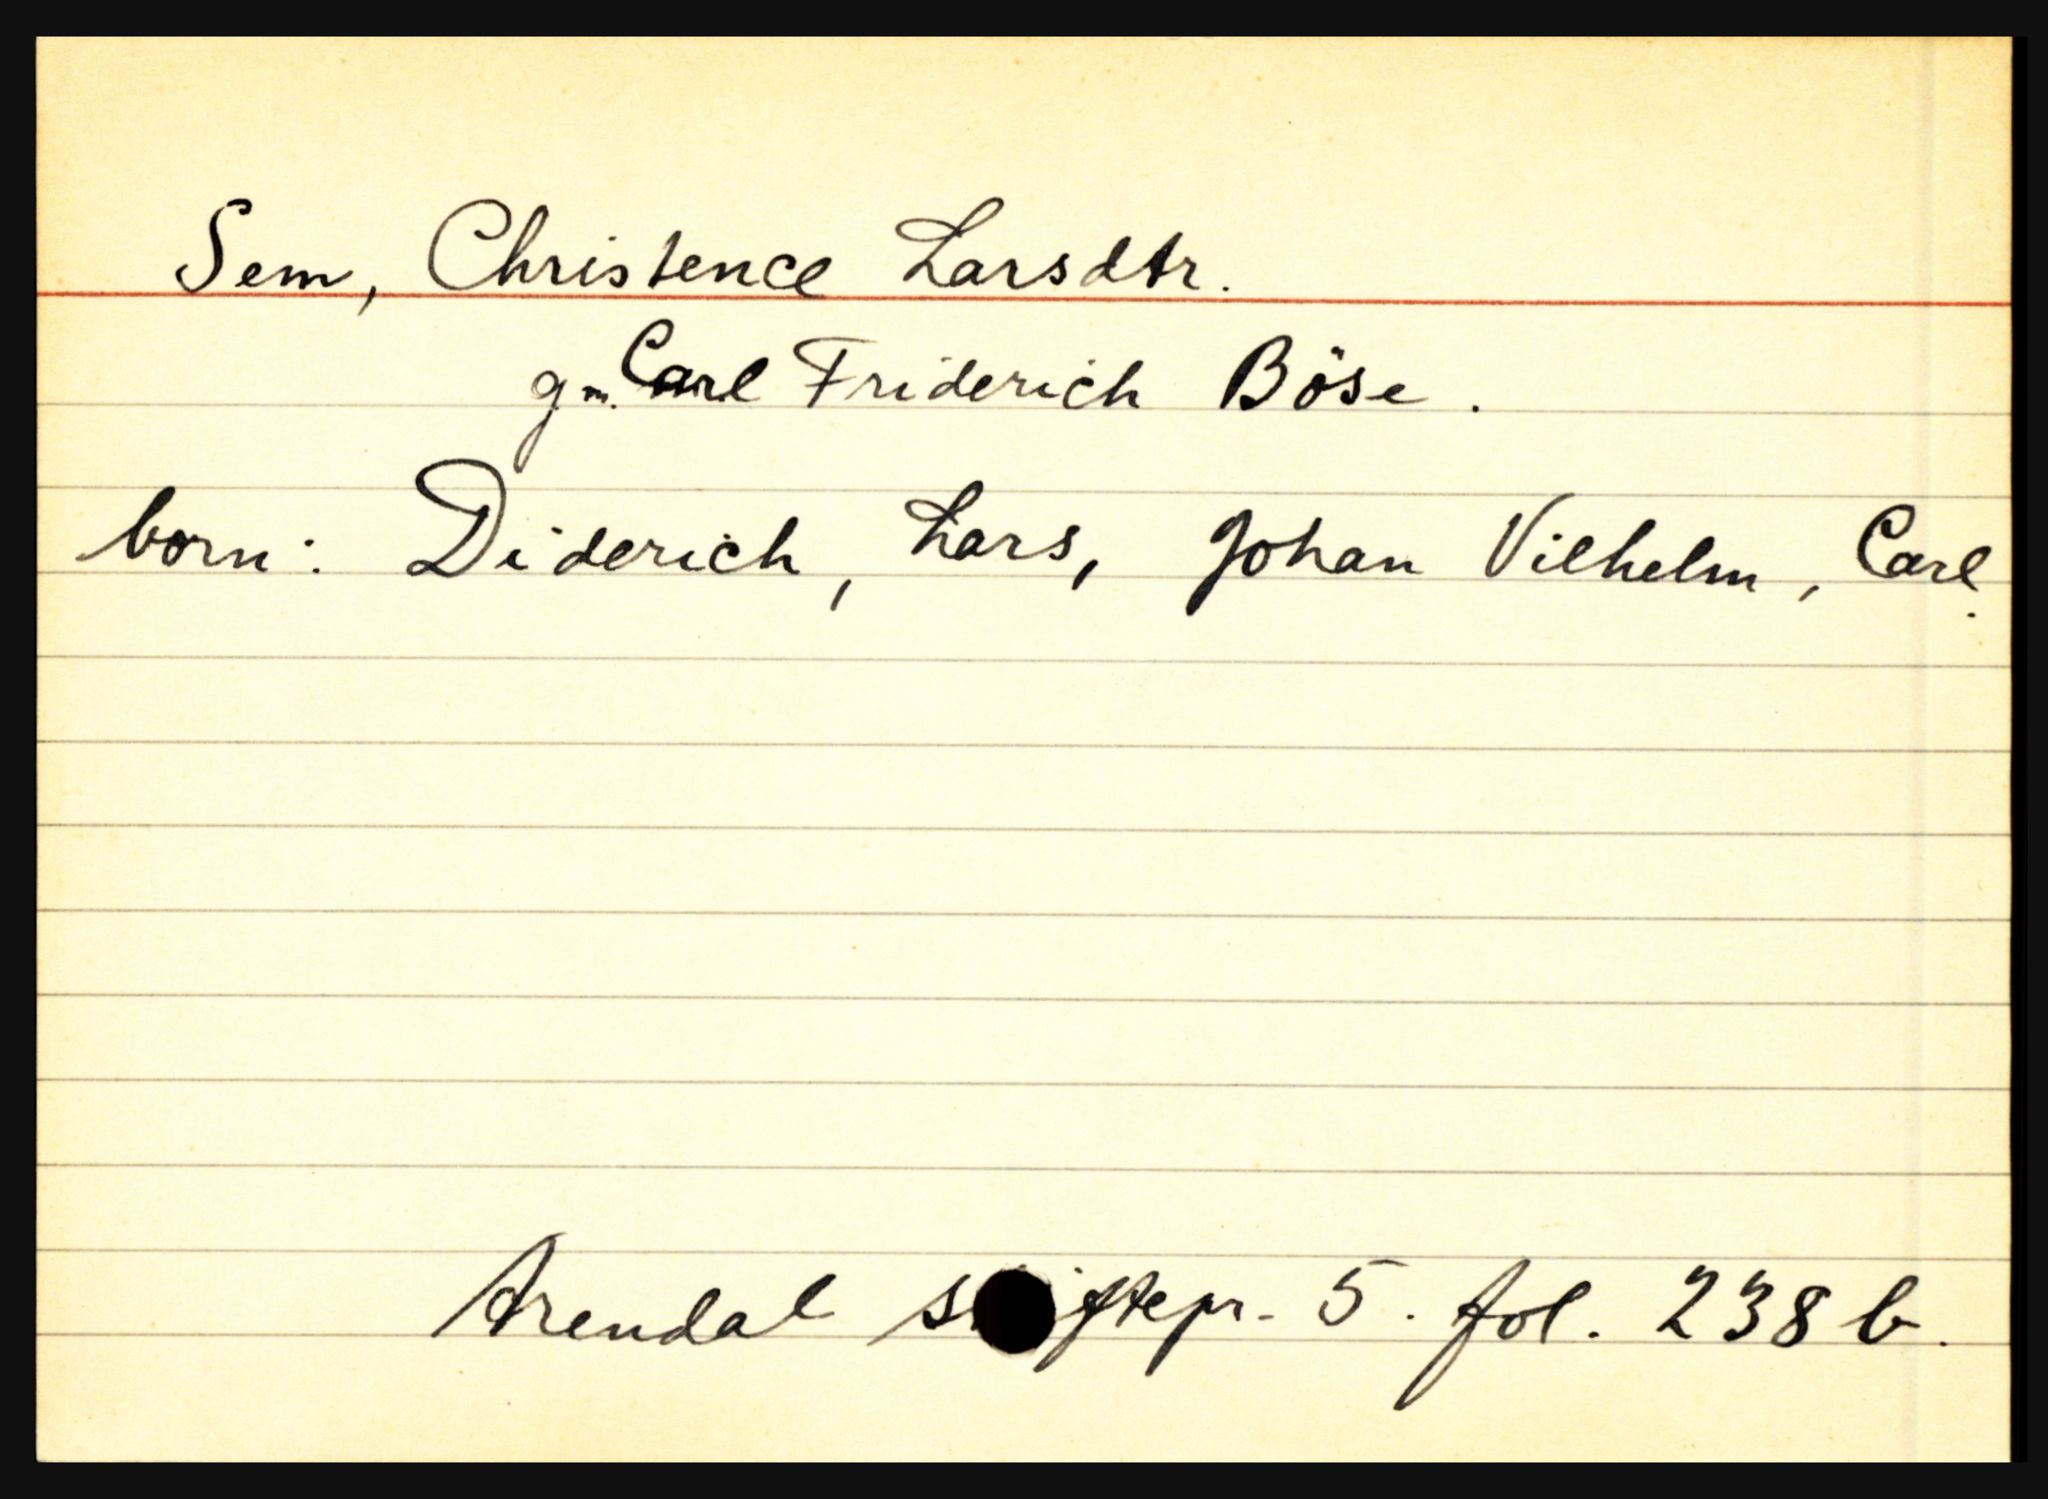 Sem, Christence Larsdtr.
gm. Carl Friderich Böse.
born: Diderich, Lars, Johan Vilhelm, Carl.
Arendal skiftepr. 5. fol. 238 b.